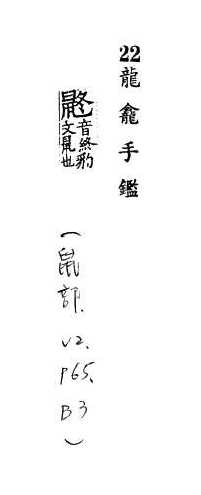 22龍龕手鑑
䶱音終豹
文鼠也
(鼠部. V2. P65. B3)